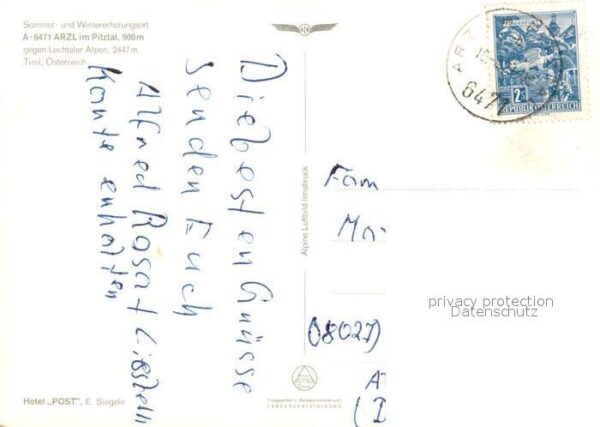 Sommer- und Wintererholungsort
A-6471 ARZL im Pitztal, 900m
gegen Lechtaler Alpen, 2447m,
Tirol, Österreich
Die besten Grüsse
senden Euch
Alfred Rosa +
Karte enhalten
Alpine Luftbild Innsbruck
Hotel „POST", E. Siegele
Freigegeben v. Bundesministerium f.
LANDESVERTEIDIGUNG
ARZ
6471
2S
REPUBLIK ÖSTERREICH
Fam
Ma
(08027)
A
(I
privacy protection
Datenschutz